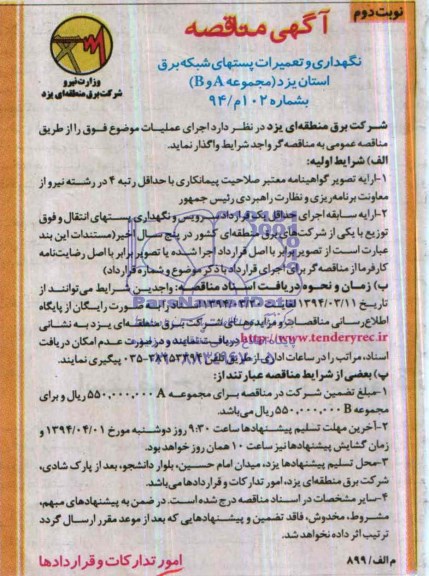 نوبت دوم
آگهی مناقصه
وزارت نیرو
شرکت برق منطقه‌ای یزد
نگهداری و تعمیرات پستهای شبکه برق
استان یزد (مجموعه A و B)
بشماره ۱۰۲م/۹۴
شرکت برق منطقه‌ای یزد در نظر دارد اجرای عملیات موضوع فوق را از طریق
مناقصه عمومی به مناقصه‌گر واجد شرایط واگذار نماید.
الف) شرایط اولیه:
۱-ارایه تصویر گواهینامه معتبر صلاحیت پیمانکاری با حداقل رتبه ۴ در رشته نیرو از
معاونت برنامه‌ریزی و نظارت راهبردی رئیس جمهور
۲-ارایه سابقه اجرای حداقل یک قرارداد سرویس و نگهداری پستهای انتقال و فوق
توزیع با یکی از شرکت‌های برق منطقه‌ای کشور در پنج سال اخیر (مستندات این بند
عبارت است از تصویر برابر با اصل قرارداد اجرا شده یا تصویر برابر با اصل رضایت‌نامه
کارفرما از مناقصه گر برای اجرای قرارداد با ذکر موضوع و شماره قرارداد)
ب) زمان و نحوه دریافت اسناد مناقصه: واجدین شرایط می‌توانند از
تاریخ ۱۳۹۴/۰۳/۱۱ لغایت ۱۳۹۴/۰۳/ اسناد را بصورت رایگان از پایگاه
اطلاع‌رسانی مناقصات و مزایده‌های شرکت برق منطقه‌ای یزد به نشانی
http://www.tenderyrec.ir دریافت نمایند و در صورت عدم امکان دریافت
اسناد، مراتب را در ساعات اداری از طریق تلفن ۰۳۵-۳۸۲۵۳۴۹۲ پیگیری نمایند.
پ) بعضی از شرایط مناقصه عبارتند از:
۱-مبلغ تضمین شرکت در مناقصه برای مجموعه A ۵۵۰,۰۰۰,۰۰۰ ریال و برای
مجموعه B ۵۵۰,۰۰۰,۰۰۰ ریال می‌باشد.
۲-آخرین مهلت تسلیم پیشنهادها ساعت ۹:۳۰ روز دوشنبه مورخ ۱۳۹۴/۰۴/۰۱ و
زمان گشایش پیشنهادها نیز ساعت ۱۰ همان روز خواهد بود.
۳-محل تسلیم پیشنهادها یزد، میدان امام حسین، بلوار دانشجو، بعد از پارک شادی،
شرکت برق منطقه‌ای یزد، امور تدارکات و قراردادها می‌باشد.
۴-سایر مشخصات در اسناد مناقصه درج شده است. در ضمن به پیشنهادهای مبهم،
مشروط، مخدوش، فاقد تضمین و پیشنهادهایی که بعد از موعد مقرر ارسال گردد
ترتیب اثر داده نخواهد شد.
امور تدارکات و قراردادها
م الف/ ۸۹۹